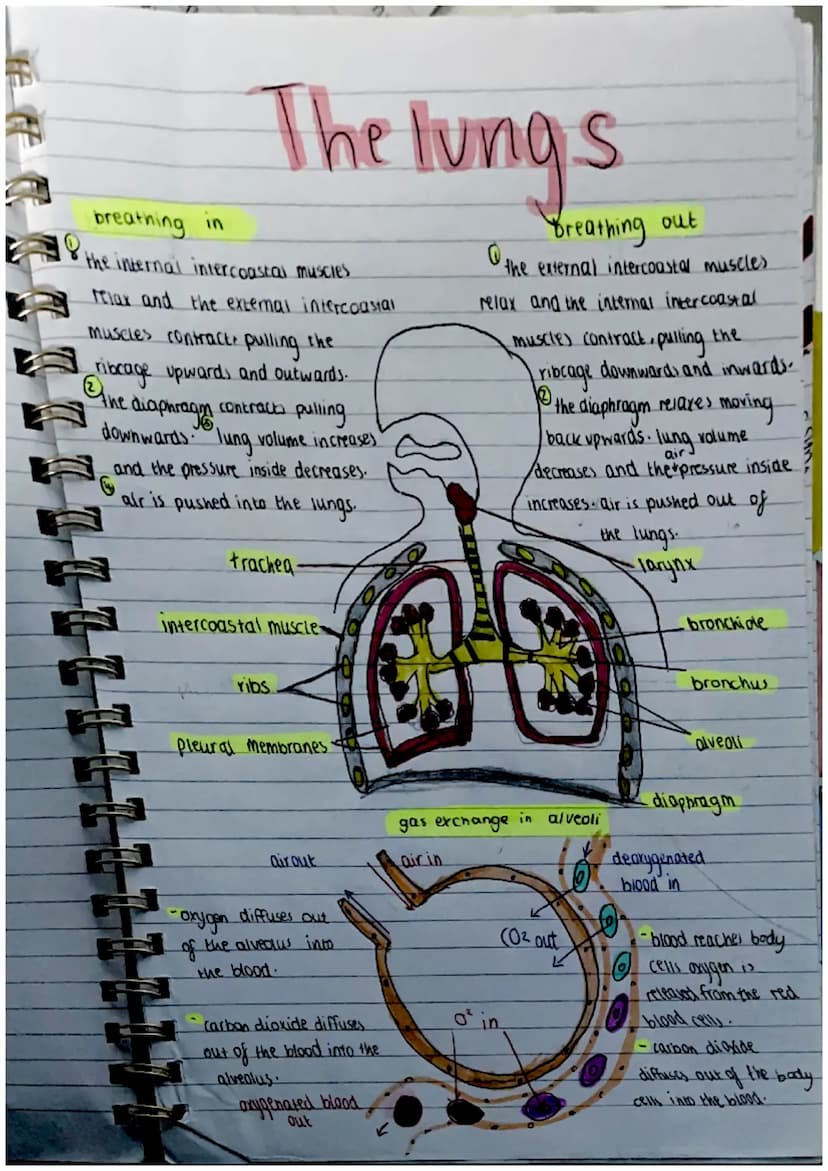 The lungs
breathing in
1 the internal intercoastal muscles
relax and the external intercoastal
muscles contract, pulling the
ribcage upwards and outwards.
2 the diaphragm contracts pulling
downwards. 3 lung volume increases
and the pressure inside decreases.
4 air is pushed into the lungs.
breathing out
1 the external intercoastal muscles
relax and the internal intercoastal
muscles contract, pulling the
ribcage downwards and inwards.
2 the diaphragm relaxes moving
back upwards. lung volume
air
decreases and the pressure inside
increases. air is pushed out of
the lungs.
trachea
intercoastal muscle
ribs
pleural membranes
larynx
bronchiole
bronchus
alveoli
diaphragm
gas exchange in alveoli
air out
air in
deoxygenated
blood in
CO2 out
O2 in
- oxygen diffuses out
of the alveolus into
the blood.
- carbon dioxide diffuses
out of the blood into the
alveolus.
oxygenated blood
out
- blood reaches body
cells oxygen is
released from the red
blood cells.
- carbon dioxide
diffuses out of the body
cells into the blood.